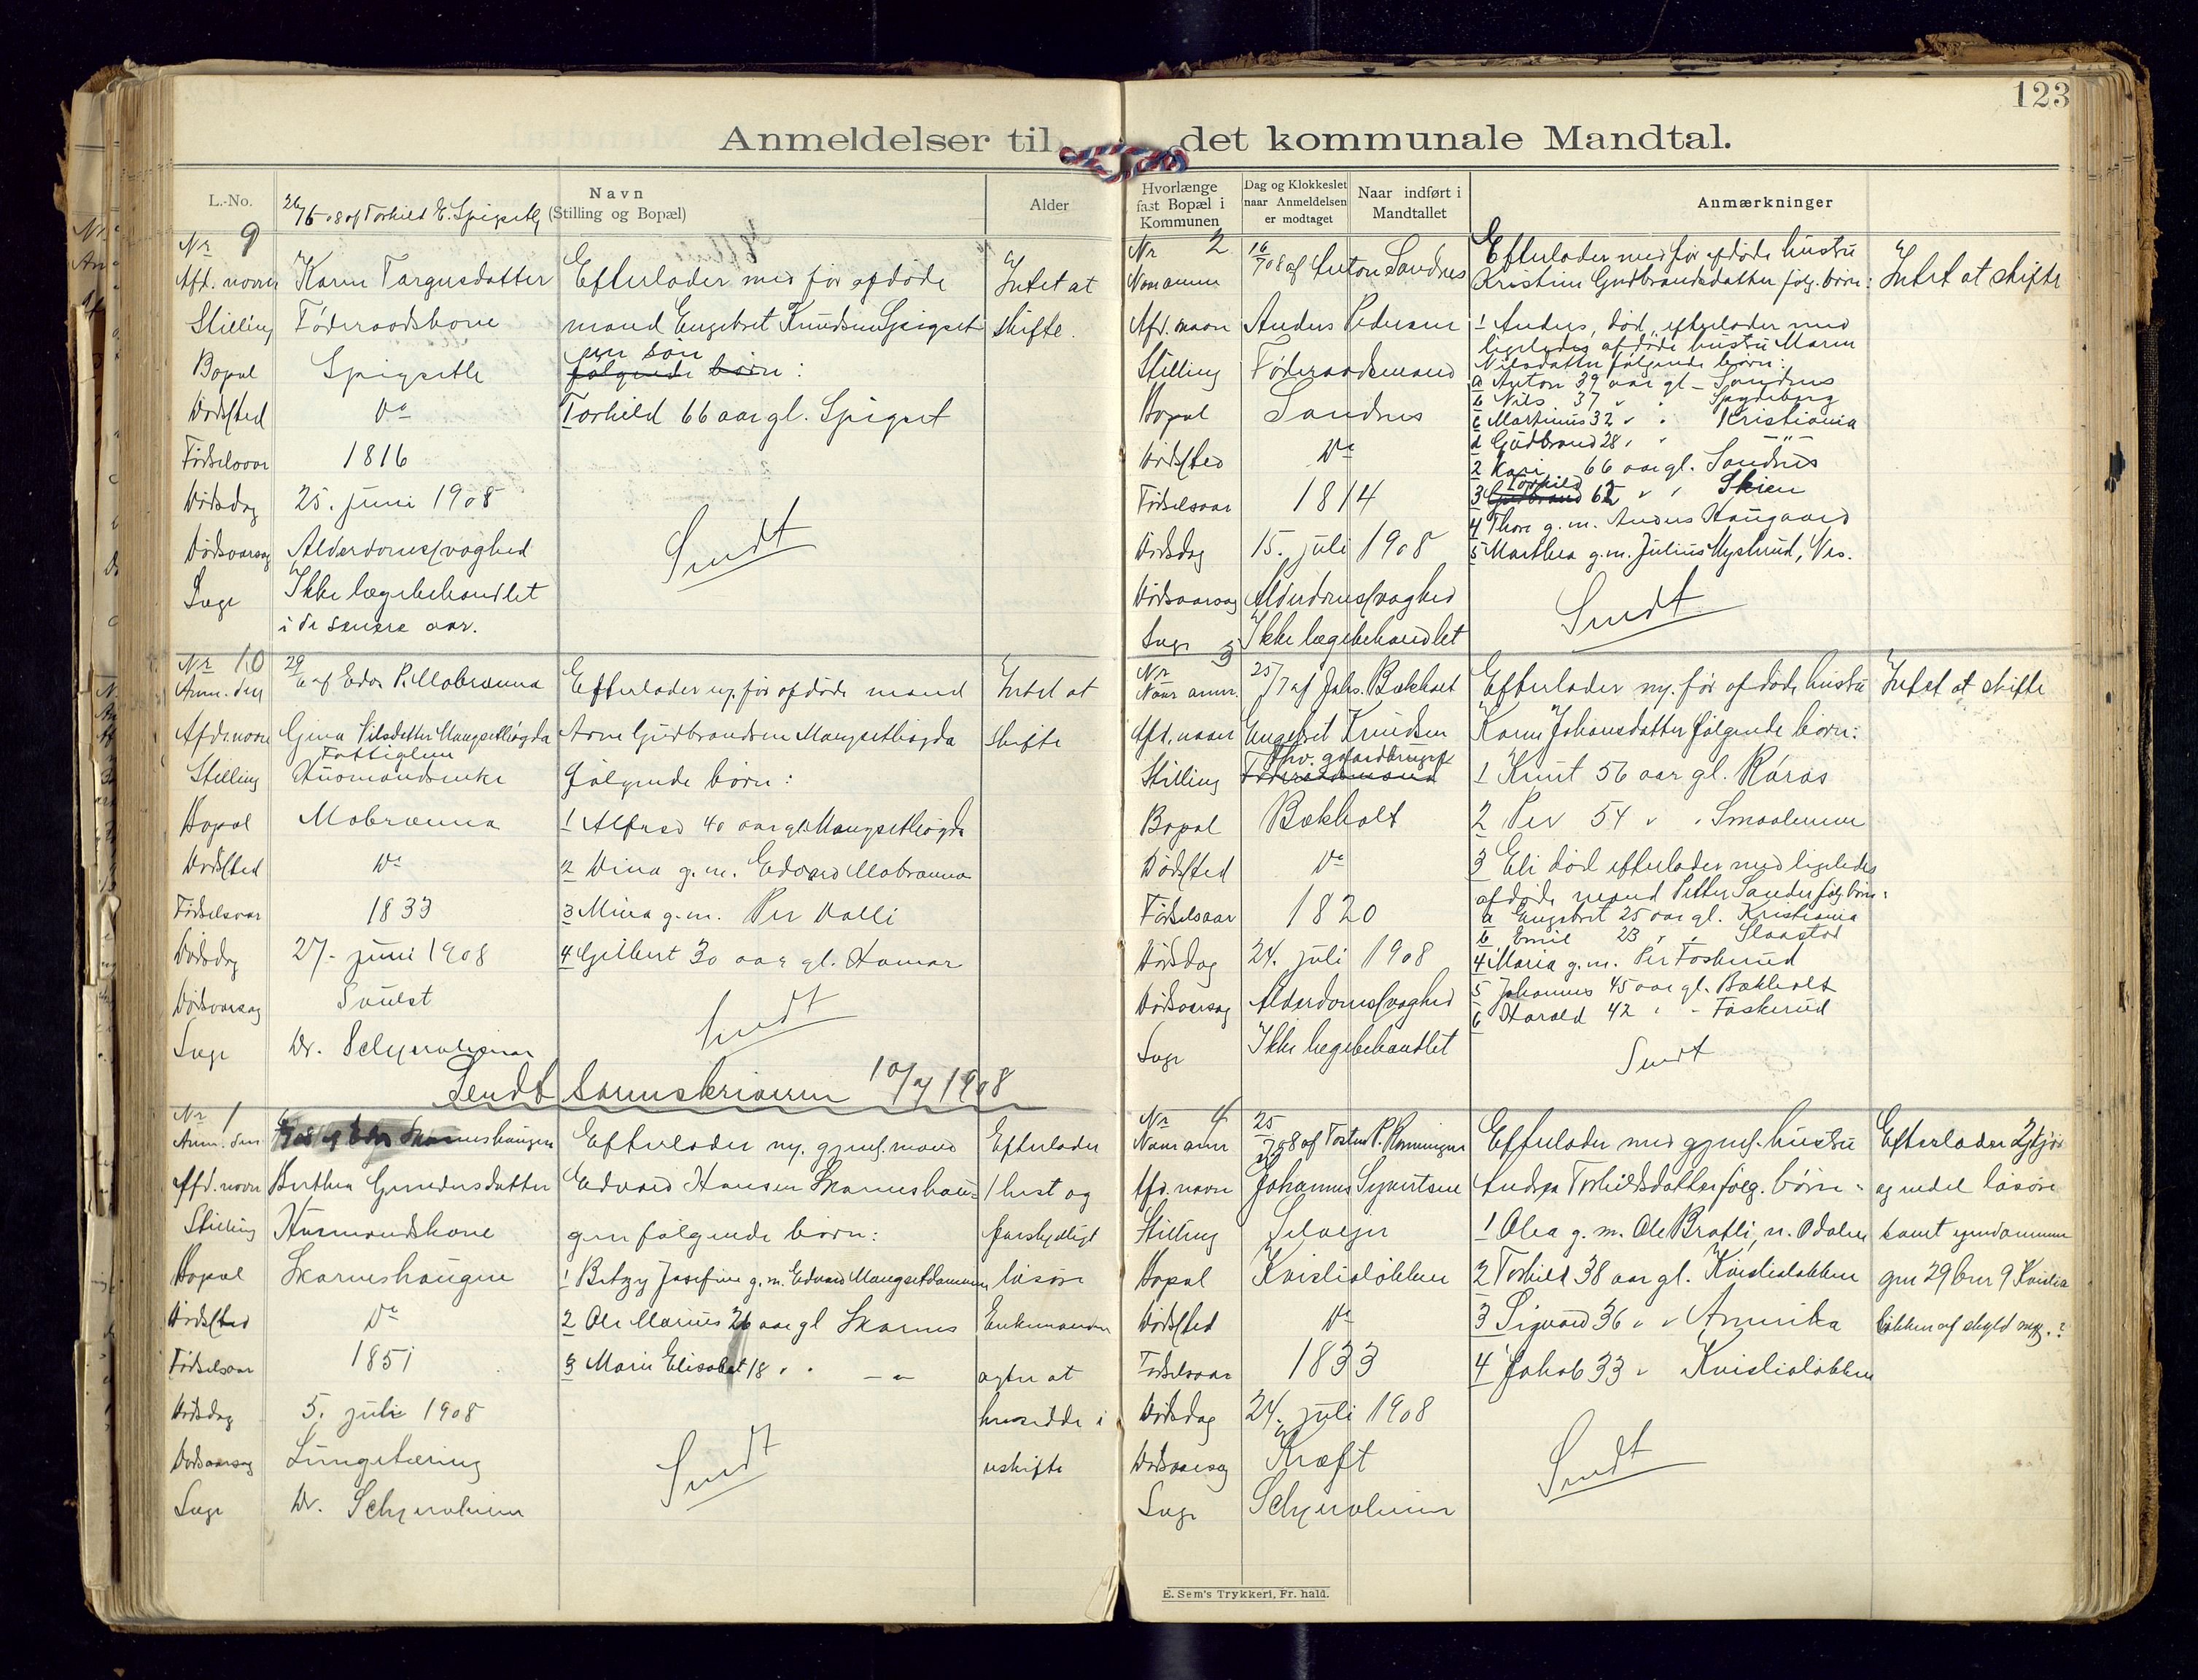 123
Anmeldelser til det kommunale Mandtal.
L.-No.
Navn
(Stilling og Bopæl)
Alder
26/6 08 af Torhild E. Spigseth
Nr 9
Afd. navn Karen Targusdatter
Stilling Føderaadskone
Bopæl Spigseth
Dødssted Do
Fødselsaar 1816
Dødsdag 25. juni 1908
Dødsaarsag Alderdomssvaghed
Læge Ikke lægebehandlet
i de senere aar.
Efterlader med før afdøde
mand Engebret Knudsen Spigset
en søn
følgende børn:
Torhild 66 aar gl. Spigset
Sundt
Intet at
skifte.
Nr 10
Anm. den 29/6 af Edv. P. Mobrænna
Afd. navn Gina Nilsdatter Mangsethøgda
Fattiglem
Stilling Husmandsenke
Bopæl Mobrænna
Dødssted Do
Fødselsaar 1833
Dødsdag 27. juni 1908
Dødsaarsag Svulst
Læge Dr. Schjervheim
Efterlader m. før afdøde mand
Arne Gudbrandsen Mangsethøgda
følgende børn:
1 Alfred 40 aar gl. Mangsethøgda
2 Dina g. m. Edvard Mobrænna
3 Mina g. m. Per Dalli
4 Gilbert 30 aar gl. Hamar
Sundt
Intet at
skifte
Sendt Sorenskriveren 10/7 1908
Nr 1
Anm. den 6/7 08 af Edv. Skarneshaugen
Afd. navn Berthea Gundersdatter
Stilling Husmandskone
Bopæl Skarneshaugen
Dødssted Do
Fødselsaar 1851
Dødsdag 5. juli 1908
Dødsaarsag Lungetæring
Læge Dr. Schjervheim
Efterlader m. gjenl. mand
Edvard Hansen Skarneshau-
gen følgende børn:
1 Betzy Josefine g. m. Edvard Mangsetdammen
2 Ole Marius 26 aar gl Skarnes
3 Marie Elisabet 18 " " — " —
Sundt
Efterlader
1 hest og
forskjelligt
løsøre
Enkemanden
agter at
hensidde i
uskifte
Hvorlænge
fast Bopæl i
Kommunen
Dag og Klokkeslet
naar Anmeldelsen
er modtaget
Naar indført i
Mandtallet
Anmærkninger
Nr 2
Naar anm. 16/7 08 af Anton Sandnes
Afd. navn Anders Pedersen
Stilling Føderaadsmand
Bopæl Sandnes
Dødssted Do
Fødselsaar 1814
Dødsdag 15. juli 1908
Dødsaarsag Alderdomssvaghed
Læge Ikke lægebehandlet
Efterlader med før afdøde hustru
Kristine Gudbrandsdatter følg. børn:
1 Anders, død, efterlader med
ligeledes afdøde hustru Maren
Nilsdatter følgende børn:
a Anton 39 aar gl — Sandnes
b Nils 37 " " Spydeberg
c Martinus 32 " " Kristiania
d Gudbrand 28 " " — " —
2 Kari 66 aar gl. Sandnes
Torhild
3 Gudbrand 62 " " Skien
4 Thore g. m. Anders Haugaard
5 Marthea g. m. Julius Mystrud, Ves.
Sundt
Intet at skifte
Nr 3
Naar anm. 25/7 af Johs. Bækholt
Afd. navn Engebret Knudsen
Fhv. gaardbruger
Stilling Føderaadsmand
Bopæl Bækholt
Dødssted Do
Fødselsaar 1820
Dødsdag 24. juli 1908
Dødsaarsag Alderdomssvaghed
Læge Ikke lægebehandlet
Efterlader m. før afdøde hustru
Karen Johansdatter følgende børn:
1 Knut 56 aar gl. Røros
2 Per 54 " " Smaalenene
3 Eli død efterlader med ligeledes
afdøde mand Petter Sander følg. børn:
a Engebret 25 aar gl. Kristiania
b Emil 23 " " Slaastad
4 Maria g. m. Per Foskerud
5 Johannes 45 aar gl. Bækholt
6 Harald 42 " " Foskerud
Sundt
Intet at skifte
Nr 4
Naar anm 25/7 08 af Torsten P. Rønningen
Afd. navn Johannes Syvertsen
Stilling Selveier
Bopæl Kvislialøkken
Dødssted Do
Fødselsaar 1833
Dødsdag 24. juli 1908
Dødsaarsag Kræft
Læge Schjervheim
Efterlader med gjenl. hustru
Andrea Torhildsdatter følg. børn:
1 Olea g. m. Ole Bratli, n. Odalen
2 Torhild 38 aar gl. Kvislialøkken
3 Sigvard 36 " " Amerika
4 Jakob 33 " Kvislialøkken
Sundt
Efterlader 2 kjør
og endel løsøre
samt eiendommen
gnr 29 bnr 9 Kvislia
løkken af skyld mrk. ?
E. Sem's Trykkeri, Fr. hald.